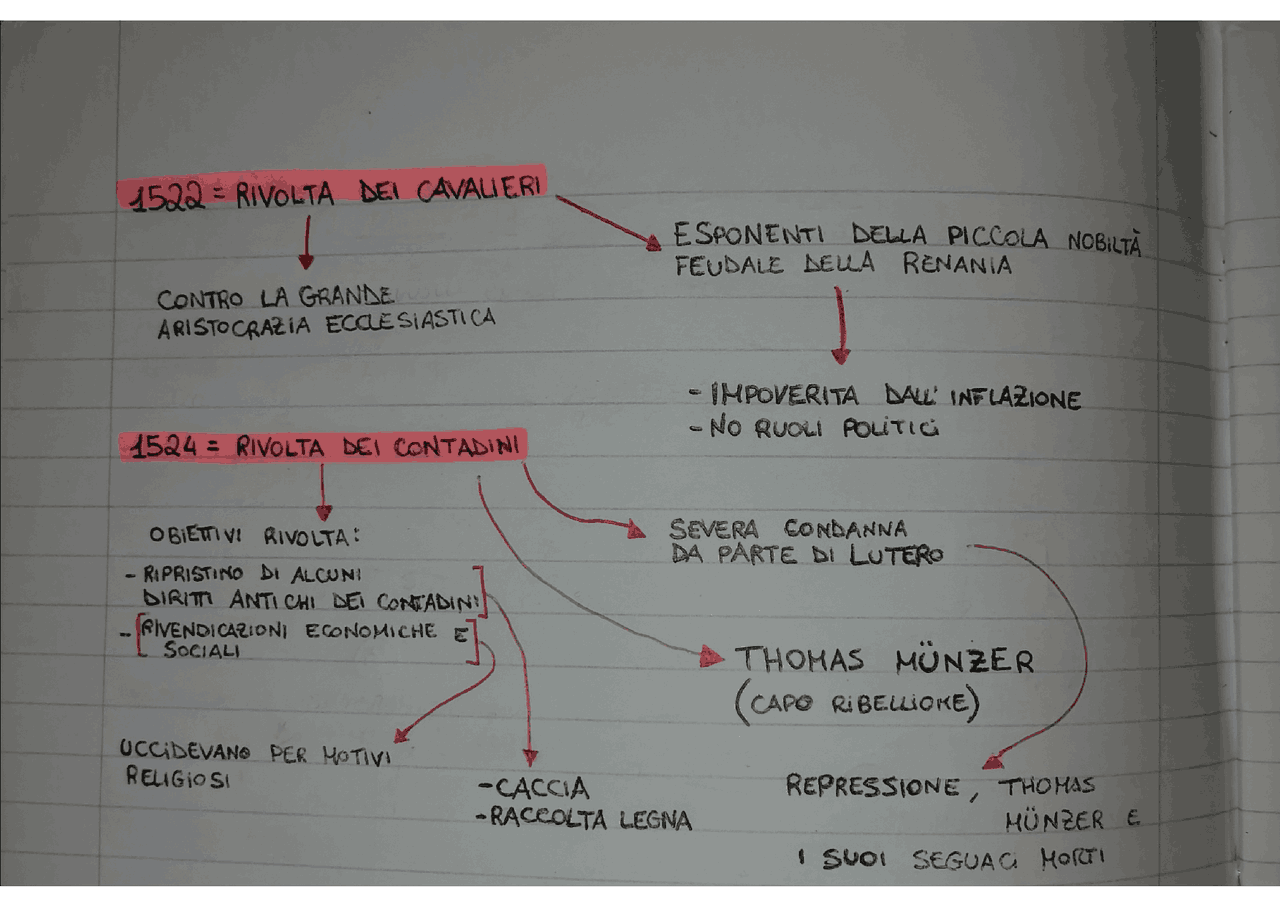 1522 = RIVOLTA DEI CAVALIERI
ESPONENTI DELLA PICCOLA NOBILTÀ
FEUDALE DELLA RENANIA
CONTRO LA GRANDE
ARISTOCRAZIA ECCLESIASTICA
- IMPOVERITA DALL'INFLAZIONE
- NO RUOLI POLITICI
1524 = RIVOLTA DEI CONTADINI
OBIETTIVI RIVOLTA:
- RIPRISTINO DI ALCUNI
DIRITTI ANTICHI DEI CONTADINI
- RIVENDICAZIONI ECONOMICHE E
SOCIALI
SEVERA CONDANNA
DA PARTE DI LUTERO
THOMAS MÜNZER
(CAPO RIBELLIONE)
UCCIDEVANO PER MOTIVI
RELIGIOSI
- CACCIA
- RACCOLTA LEGNA
REPRESSIONE, THOMAS
MÜNZER E
I SUOI SEGUACI MORTI